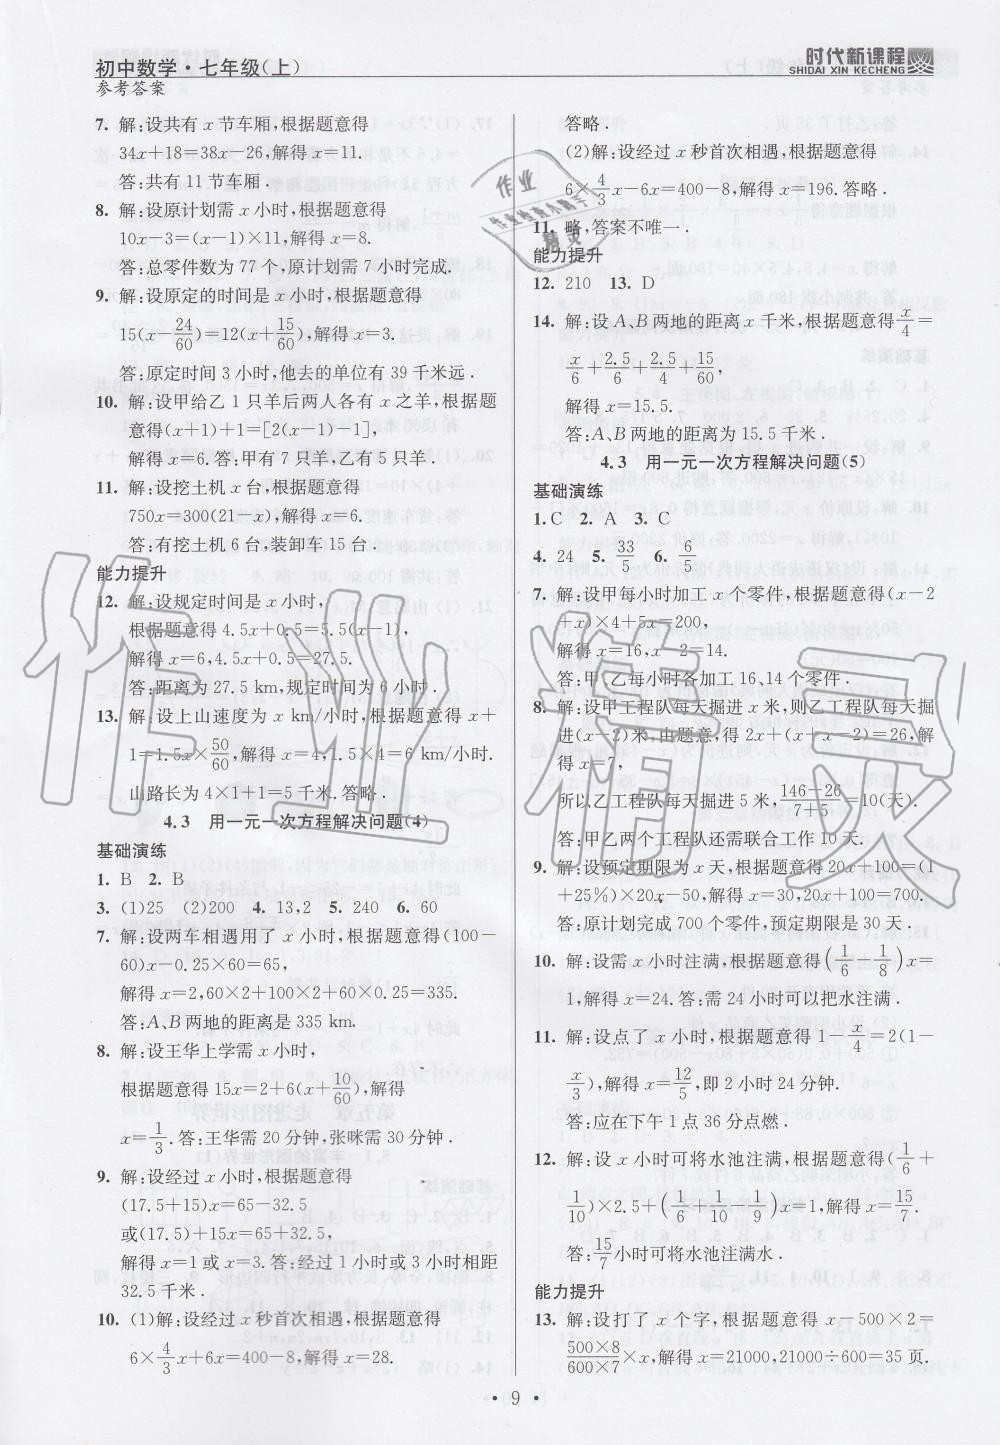 初中数学·七年级(上)
参考答案
时代新课程
SHIDAI XIN KECHENG
7. 解:设共有 x 节车厢,根据题意得
34x+18=38x-26,解得 x=11.
答:共有 11 节车厢.
8. 解:设原计划需 x 小时,根据题意得
10x-3=(x-1)×11,解得 x=8.
答:总零件数为 77 个,原计划需 7 小时完成.
9. 解:设原定的时间是 x 小时,根据题意得
15(x-24/60)=12(x+15/60),解得 x=3.
答:原定时间 3 小时,他去的单位有 39 千米远.
10. 解:设甲给乙 1 只羊后两人各有 x 之羊,根据题
意得(x+1)+1=[2(x-1)-1],
解得 x=6.答:甲有 7 只羊,乙有 5 只羊.
11. 解:设挖土机 x 台,根据题意得
750x=300(21-x),解得 x=6.
答:有挖土机 6 台,装卸车 15 台.
能力提升
12. 解:设规定时间是 x 小时,
根据题意得 4.5x+0.5=5.5(x-1),
解得 x=6,4.5x+0.5=27.5.
答:距离为 27.5 km,规定时间为 6 小时.
13. 解:设上山速度为 x km/小时,根据题意得 x+
1=1.5x×50/60,解得 x=4,1.5×4=6 km/小时.
山路长为 4×1+1=5 千米.答略.
4.3 用一元一次方程解决问题(4)
基础演练
1. B 2. B
3. (1)25 (2)200 4. 13,2 5. 240 6. 60
7. 解:设两车相遇用了 x 小时,根据题意得(100-
60)x-0.25×60=65,
解得 x=2,60×2+100×2+60×0.25=335.
答:A、B 两地的距离是 335 km.
8. 解:设王华上学需 x 小时,
根据题意得 15x=2+6(x+10/60),解得
x=1/3.答:王华需 20 分钟,张咪需 30 分钟.
9. 解:设经过 x 小时,根据题意得
(17.5+15)x=65-32.5
或(17.5+15)x=65+32.5,
解得 x=1 或 x=3.答:经过 1 小时或 3 小时相距
32.5 千米.
10. (1)解:设经过 x 秒首次相遇,根据题意得
6×4/3x+6x=400-8,解得 x=28.
答略.
(2)解:设经过 x 秒首次相遇,根据题意得
6×4/3x-6x=400-8,解得 x=196.答略.
11. 略,答案不唯一.
能力提升
12. 210 13. D
14. 解:设 A、B 两地的距离 x 千米,根据题意得x/4=
x/6+2.5/6+2.5/4+15/60,
解得 x=15.5.
答:A、B 两地的距离为 15.5 千米.
4.3 用一元一次方程解决问题(5)
基础演练
1. C 2. A 3. C
4. 24 5. 33/5 6. 6/5
7. 解:设甲每小时加工 x 个零件,根据题意得(x-2
+x)×4+5x=200,
解得 x=16,x-2=14.
答:甲、乙每小时各加工 16、14 个零件.
8. 解:设甲工程队每天掘进 x 米,则乙工程队每天掘
进(x-2)米,由题意,得 2x+(x+x-2)=26,解
得 x=7,
所以乙工程队每天掘进 5 米,146-26/7+5=10(天).
答:甲乙两个工程队还需联合工作 10 天.
9. 解:设预定期限为 x 天,根据题意得 20x+100=(1
+25%)×20x-50,解得 x=30,20x+100=700.
答:原计划完成 700 个零件,预定期是 30 天.
10. 解:设需 x 小时注满,根据题意得(1/6-1/8)x=
1,解得 x=24.答:需 24 小时可以把水注满.
11. 解:设点了 x 小时,根据题意得 1-x/4=2(1-
x/3),解得 x=12/5,即 2 小时 24 分钟.
答:应在下午 1 点 36 分点燃.
12. 解:设 x 小时可将水池注满,根据题意得(1/6+
1/10)×2.5+(1/6+1/10-1/9)×x=1,解得 x=15/7.
答:15/7小时可将水池注满水.
能力提升
13. 解:设打了 x 个字,根据题意得 x-500×2=
500×8/600×7×x,解得 x=21000,21000÷600=35 页.
作业
精灵
作业精灵
·9·